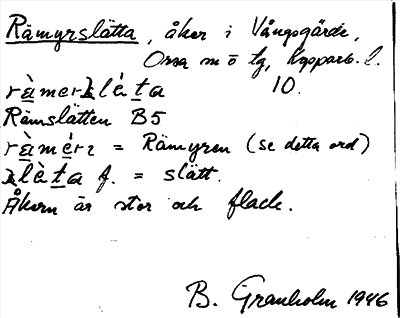 Rämyrslätta, åker i Vångsgärde,
Orsa sn o tg, Kopparb. l.
ràmerʒlὰta 10.
Rämslätten B5
ràmėrz = Rämyren (se detta ord)
ʒlὰta f. = slätt.
Åkern är stor och flack.
B. Granholm 1946